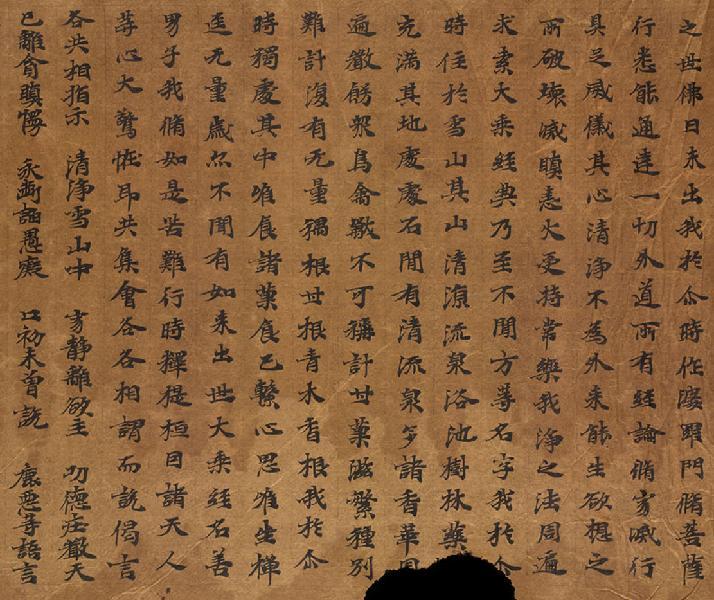 之世佛日未出我於尒時作婆羅門脩菩薩
行悉能通達一切外道所有經論脩寂滅行
具足威儀其心清淨不為外来能生欲想之
所破壞滅瞋恚火受持常樂我淨之法周遍
求索大乘經典乃至不聞方等名字我於尒
時住於雪山其山清涼流泉浴池樹林藥
充滿其地處處石閒有清流泉多諸香華周
遍嚴飾眾鳥禽獸不可稱計甘菓滋繁種別
難計復有无量藕根甘根青木香根我於尒
時獨處其中唯食諸菓食已繫心思惟坐禪
逕无量歲尒不聞有如来出世大乘經名善
男子我脩如是苦難行時釋提桓因諸天人
等心大驚恠即共集會各各相謂而說偈言
各共相指示 清淨雪山中 寂静離欲主 功德莊嚴天
已離貪瞋慢 永断諂愚癡 口初未曾說 麁惡等語言